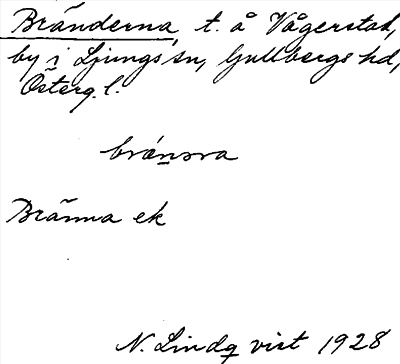 Bränderna, t. å Vågerstad,
by i Ljungs sn, Gullbergs hd,
Österg. l.
bränsra
Bränna ek
N. Lindqvist 1928